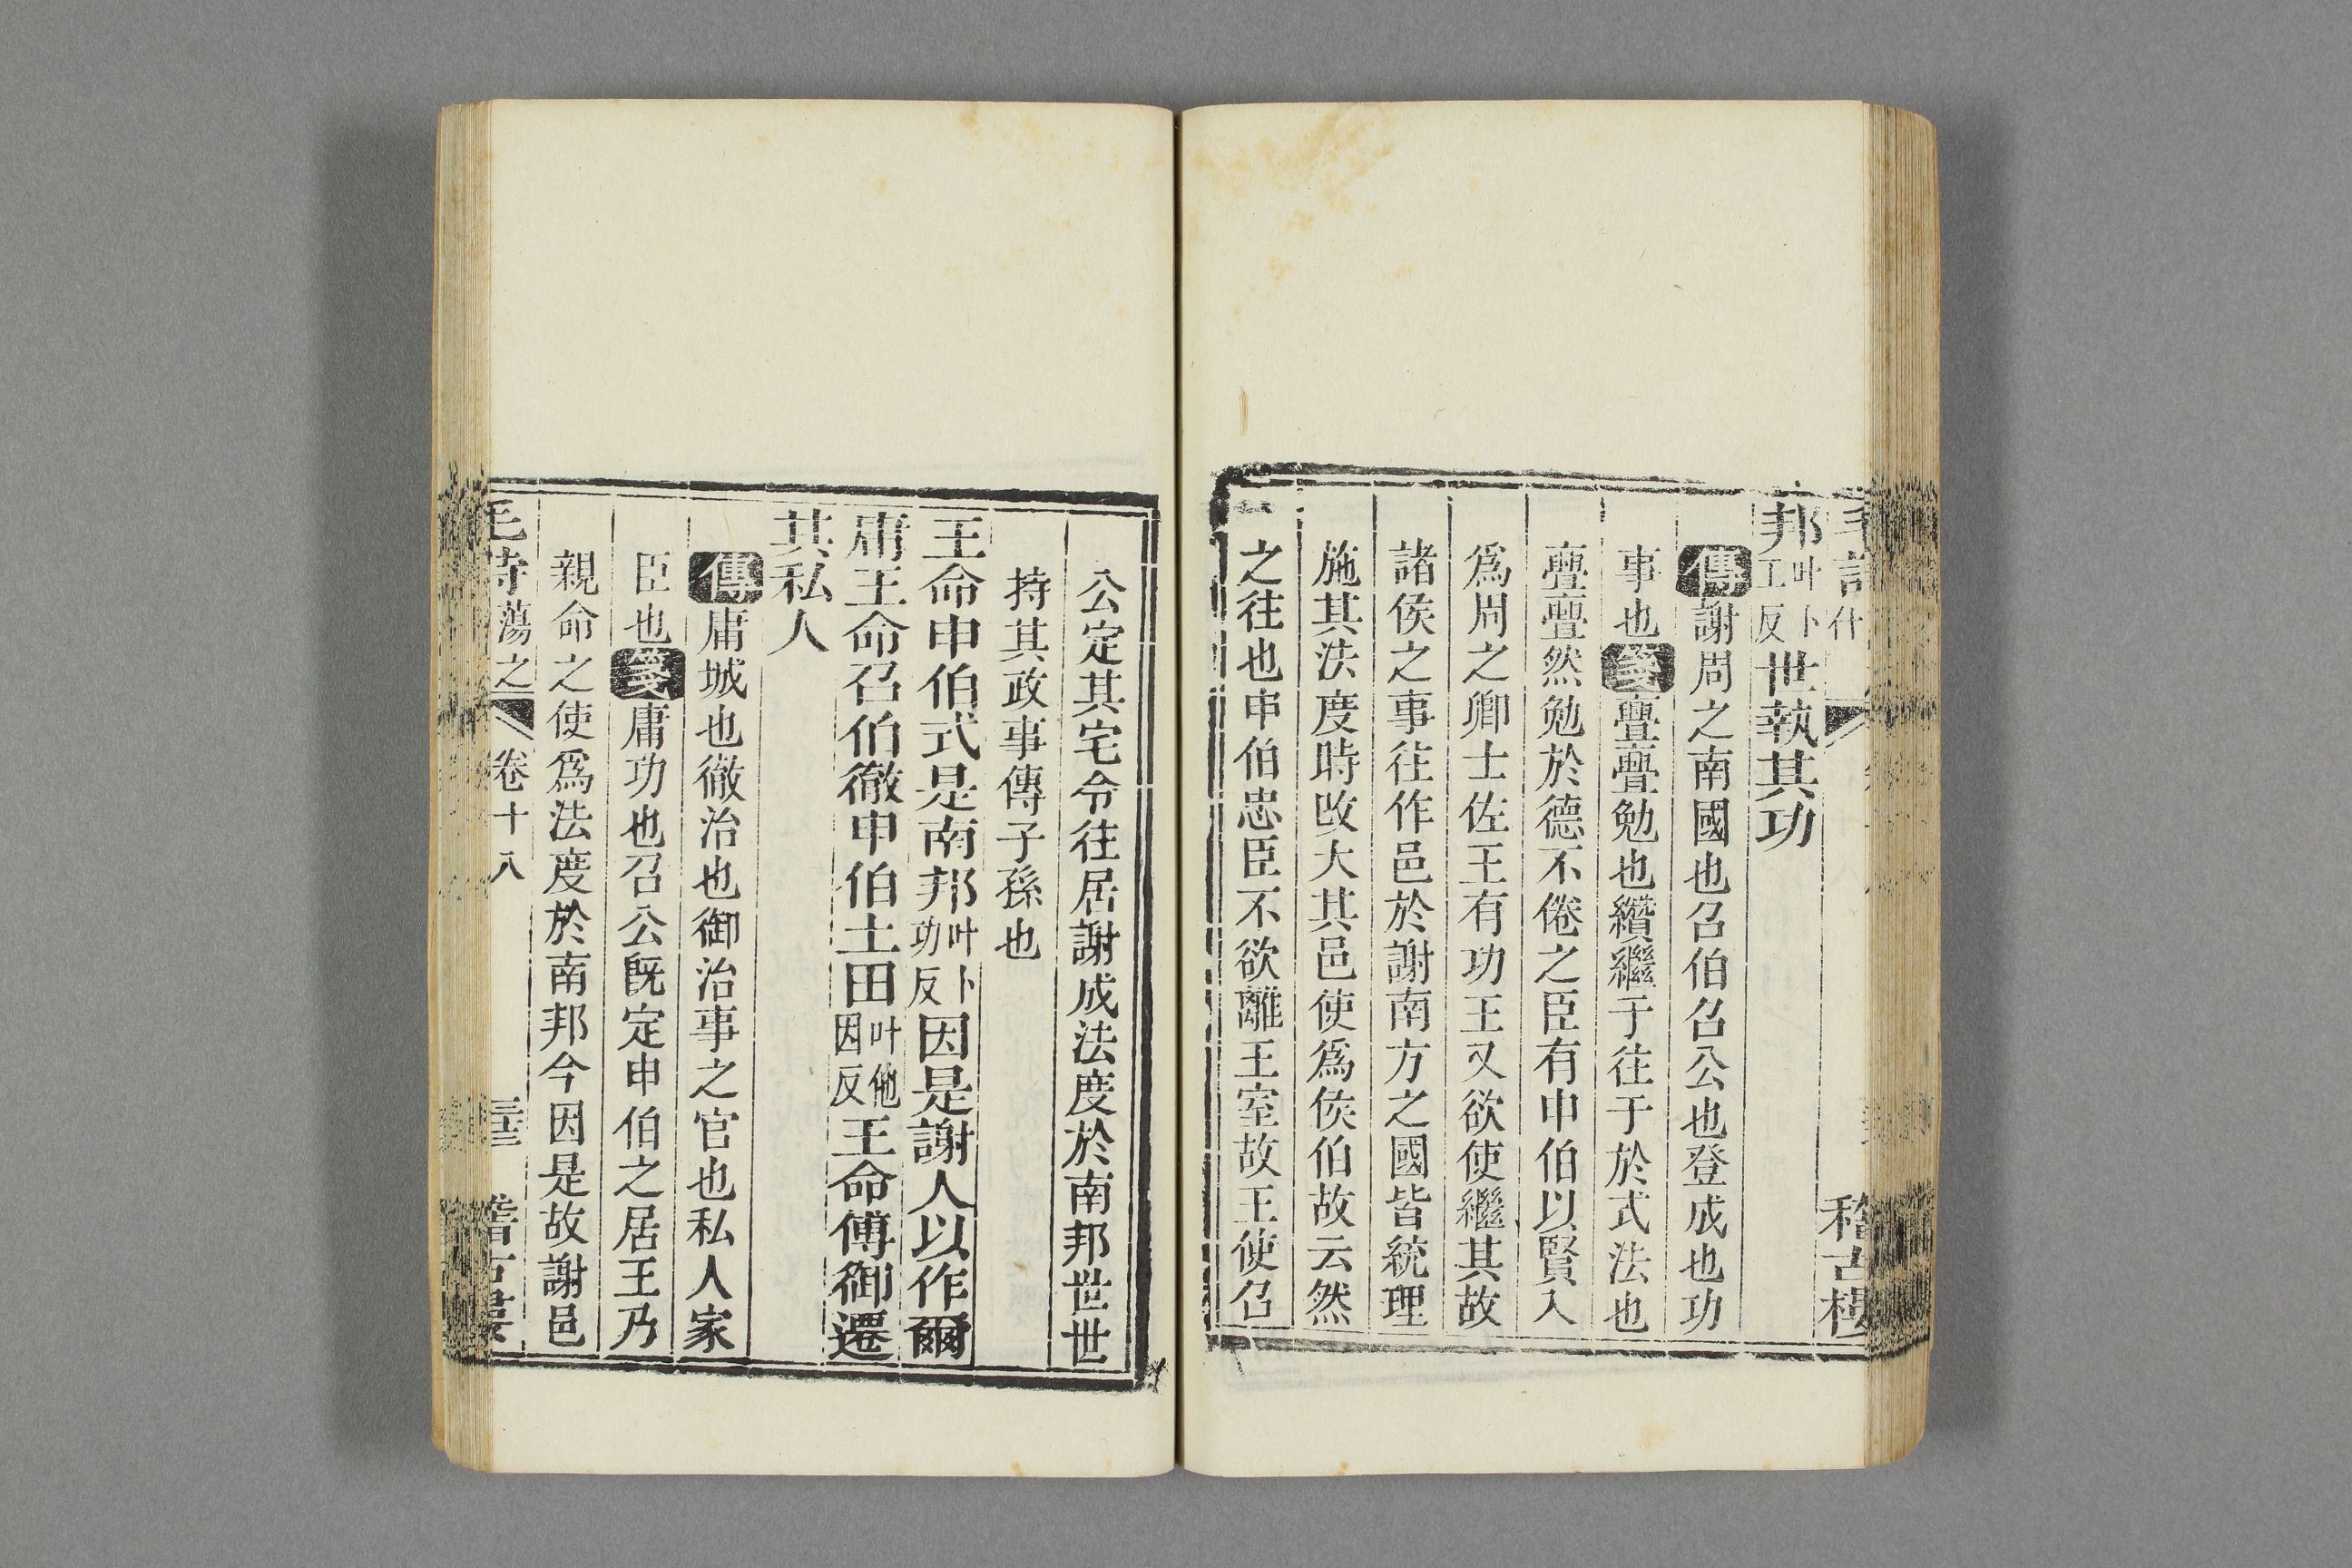 邦叶卜工反世執其功
傳謝周之南國也召伯召公也登成也功
事也箋亹亹勉也纘繼于往于於式法也
亹亹然勉於德不倦之臣有申伯以賢入
爲周之卿士佐王有功王又欲使繼其故
諸侯之事往作邑於謝南方之國皆統理
施其法度時改大其邑使爲侯伯故云然
之往也申伯忠臣不欲離王室故王使召
公定其宅令往居謝成法度於南邦世世
持其政事傳子孫也
王命申伯式是南邦叶卜功反因是謝人以作爾
庸王命召伯徹申伯土田叶他因反王命傅御遷
其私人
傳庸城也徹治也御治事之官也私人家
臣也箋庸功也召公既定申伯之居王乃
親命之使爲法度於南邦今因是故謝邑
毛詩蕩之 卷十八 稽古樓